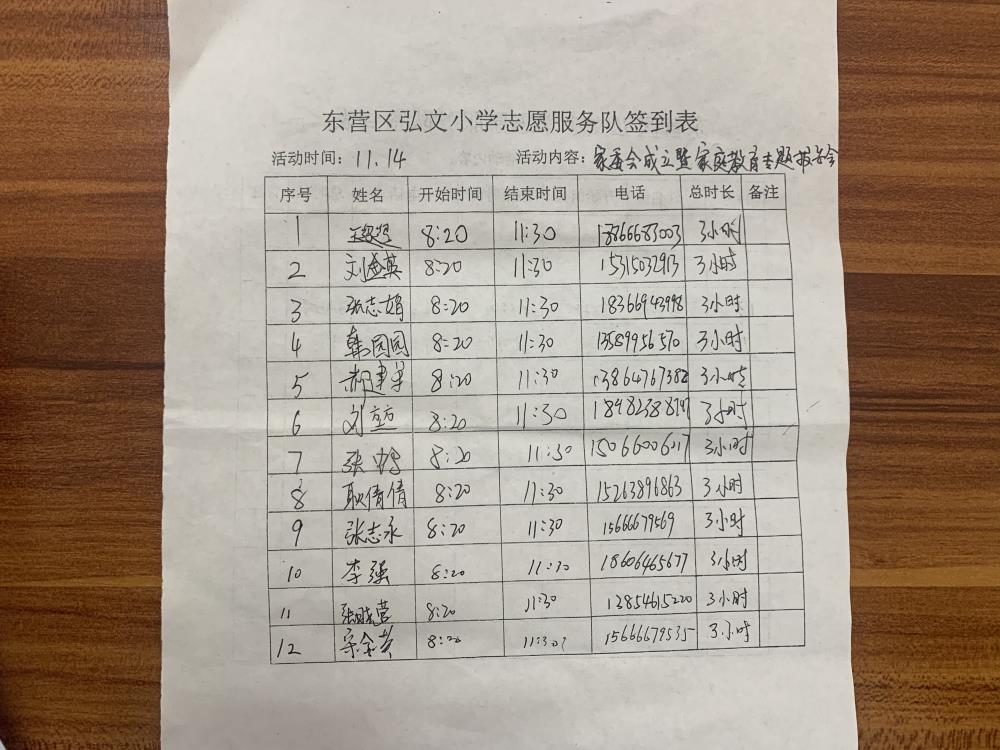 东营区弘文小学志愿服务队签到表
活动时间：11.14 活动内容：家委会成立暨家庭教育专题报告会
序号 姓名 开始时间 结束时间 电话 总时长 备注
1 8:20 11:30 18866683003 3小时
2 刘盛英 8:20 11:30 15315032913 3小时
3 张志娟 8:20 11:30 18366943998 3小时
4 韩园园 8:20 11:30 13589956570 3小时
5 8:20 11:30 13864767382 3小时
6 刘 8:20 11:30 3小时
7 张 8:20 11:30 15066006017 3小时
8 耿倩倩 8:20 11:30 15263896863 3小时
9 张志永 8:20 11:30 15666679569 3小时
10 李强 8:20 11:30 18606465677 3小时
11 张晓营 8:20 11:30 13854615220 3小时
12 宋金英 8:20 11:30 15666679535 3小时